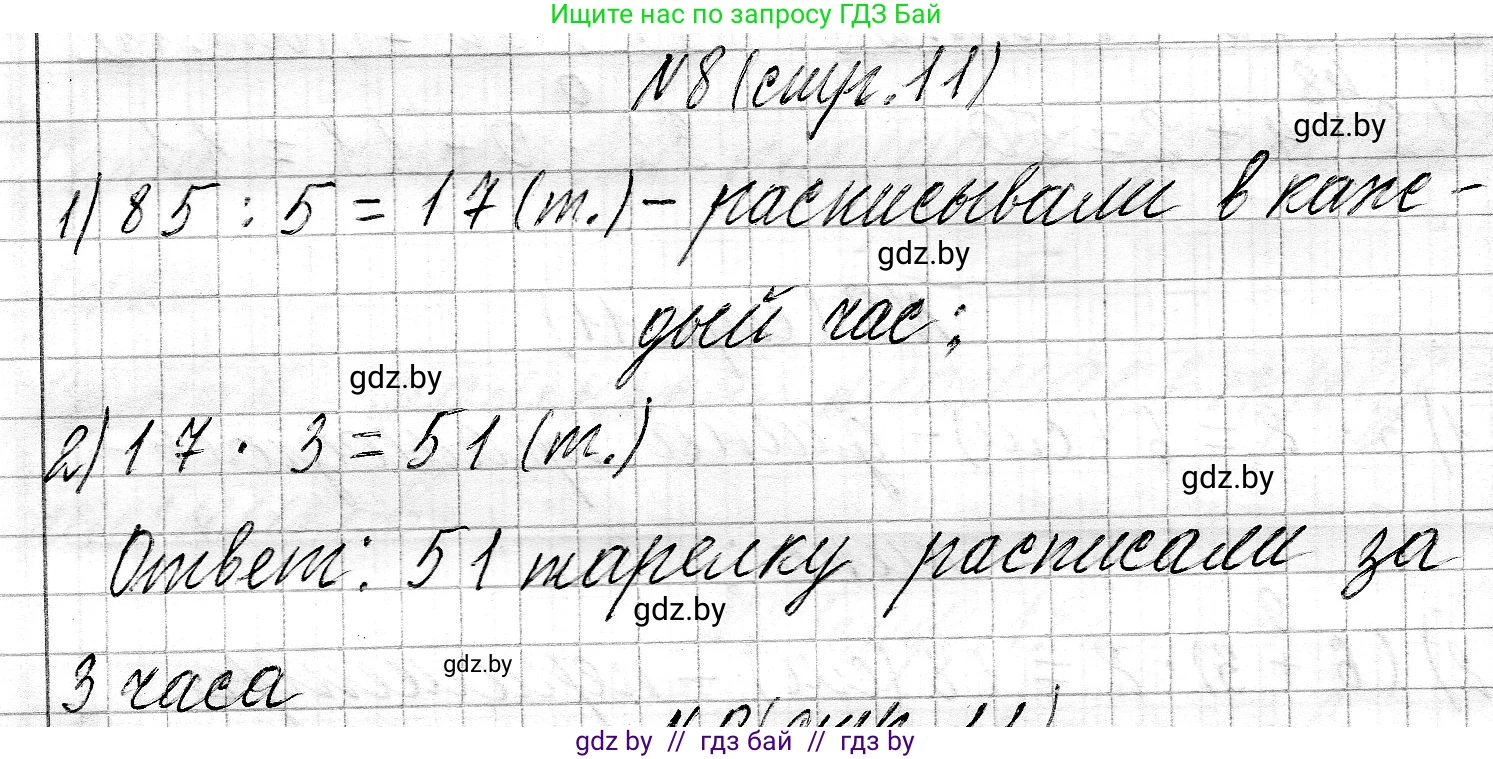 Ищите нас по запросу ГДЗ Бай
№8 (стр. 11)
gdz.by
1) 85 : 5 = 17 (т.) – расписывали в каж-
gdz.by
дый час;
gdz.by
2) 17 · 3 = 51 (т.)
gdz.by
Ответ: 51 тарелку расписали за
gdz.by
3 часа
gdz.by
gdz by // гдз бай // гдз by